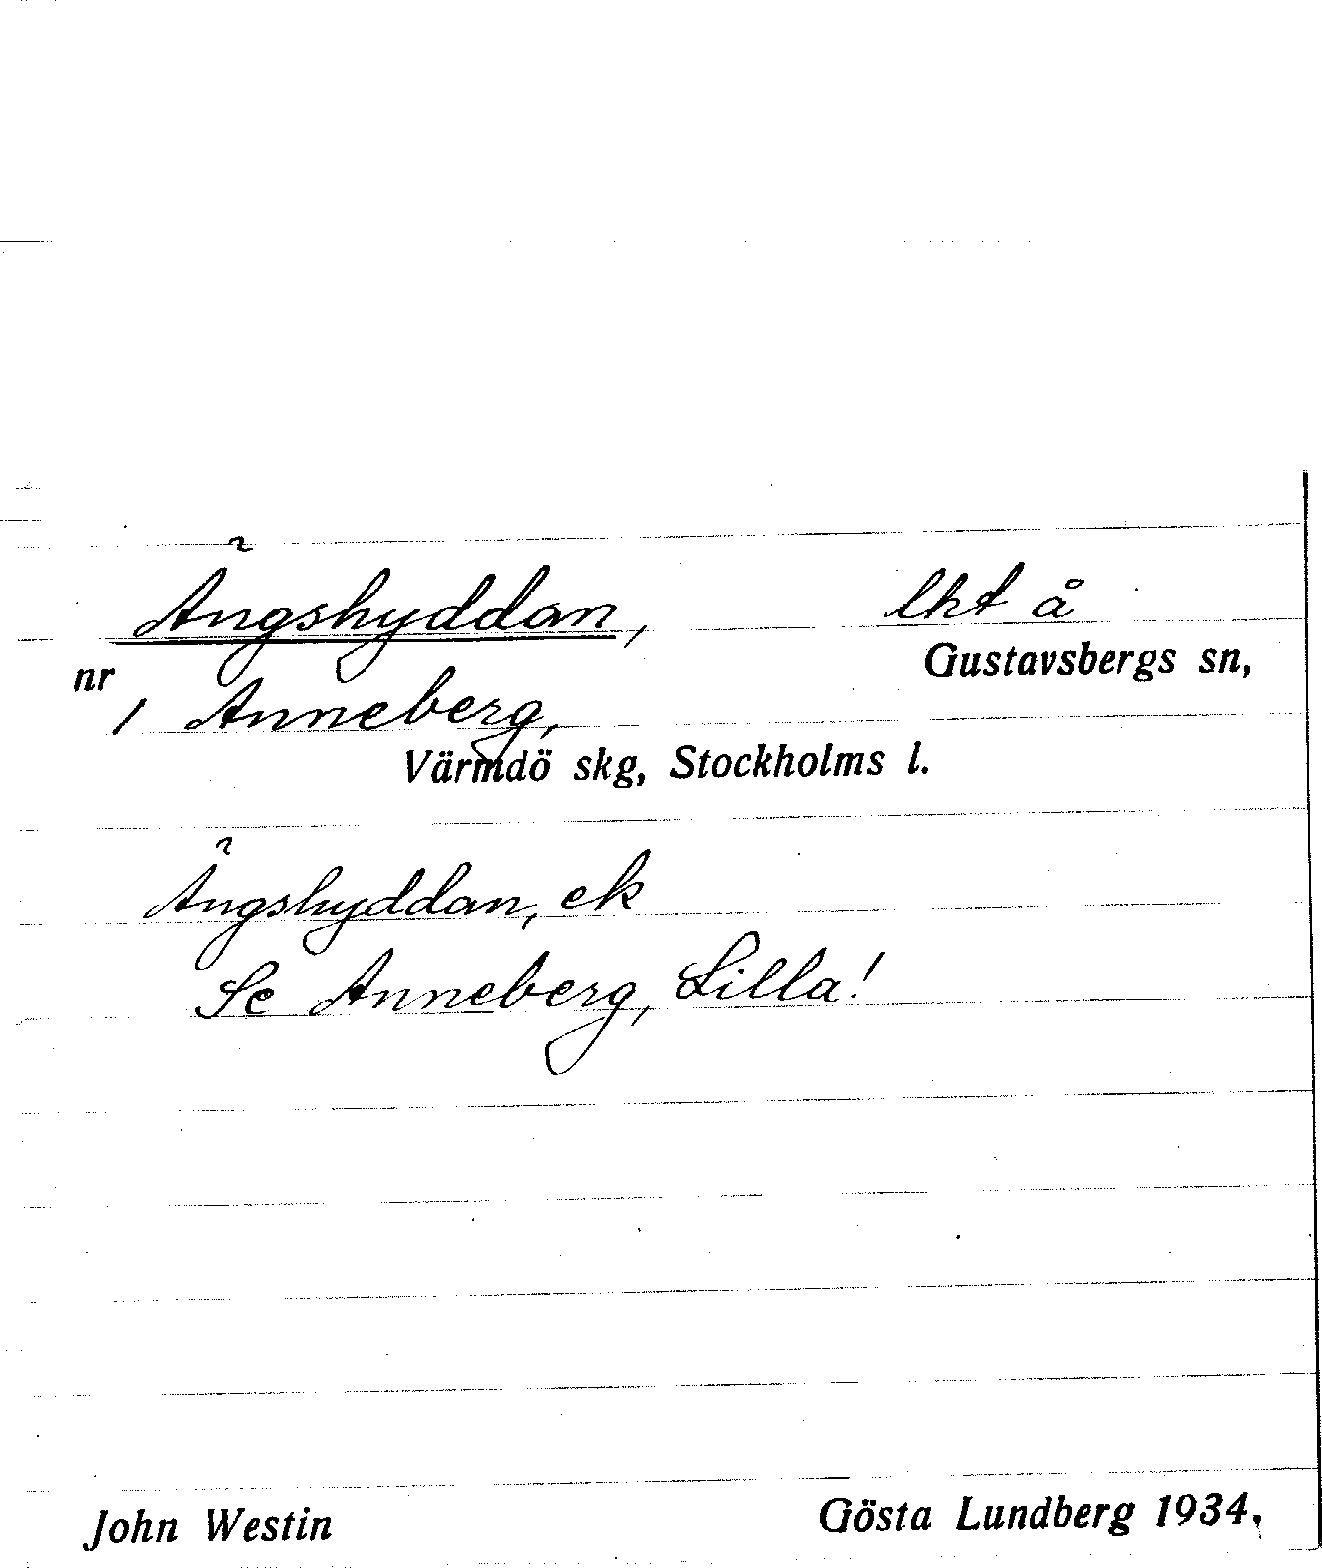 Ängshyddan, lht å
Gustavsbergs sn,
nr 1 Anneberg,
Värmdö skg, Stockholms l.
Ängshyddan, ek
Se Anneberg, Lilla!
John Westin Gösta Lundberg 1934,